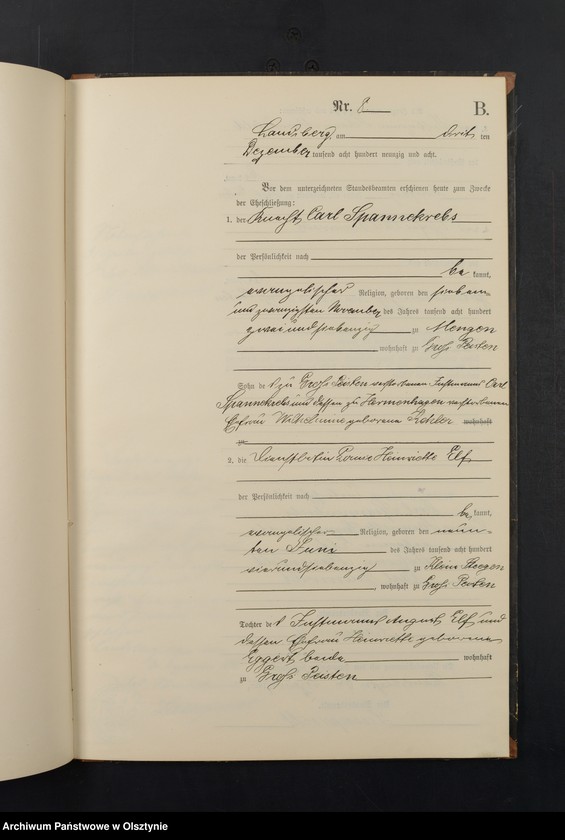 Nr. 8
B.
Landsberg, am dritten
Dezember tausend acht hundert neunzig und acht.
Vor dem unterzeichneten Standesbeamten erschienen heute zum Zwecke
der Eheschließung:
1. der Knecht Carl Spannekrebs
der Persönlichkeit nach
be kannt,
evangelischer Religion, geboren den sieben-
undzwanzigsten November des Jahres tausend acht hundert
zweiundsiebenzig zu Mengen
wohnhaft zu Groß Peisten
Sohn des zu Groß Peisten verstorbenen Instmanns Carl
Spannekrebs und dessen zu Hermenhagen verstorbenen
Ehefrau Wilhelmine geborene wohnhaft
zu
2. die Dienstbotin Henriette Elf
der Persönlichkeit nach
be kannt,
evangelischer Religion, geboren den neun-
ten Juni des Jahres tausend acht hundert
vierundsiebenzig zu Klein Steegen
, wohnhaft zu Groß Peisten
Tochter des Instmanns August Elf und
dessen Ehefrau Heinriette geborene
Eggert beide wohnhaft
zu Groß Peisten
Archiwum Państwowe w Olsztynie